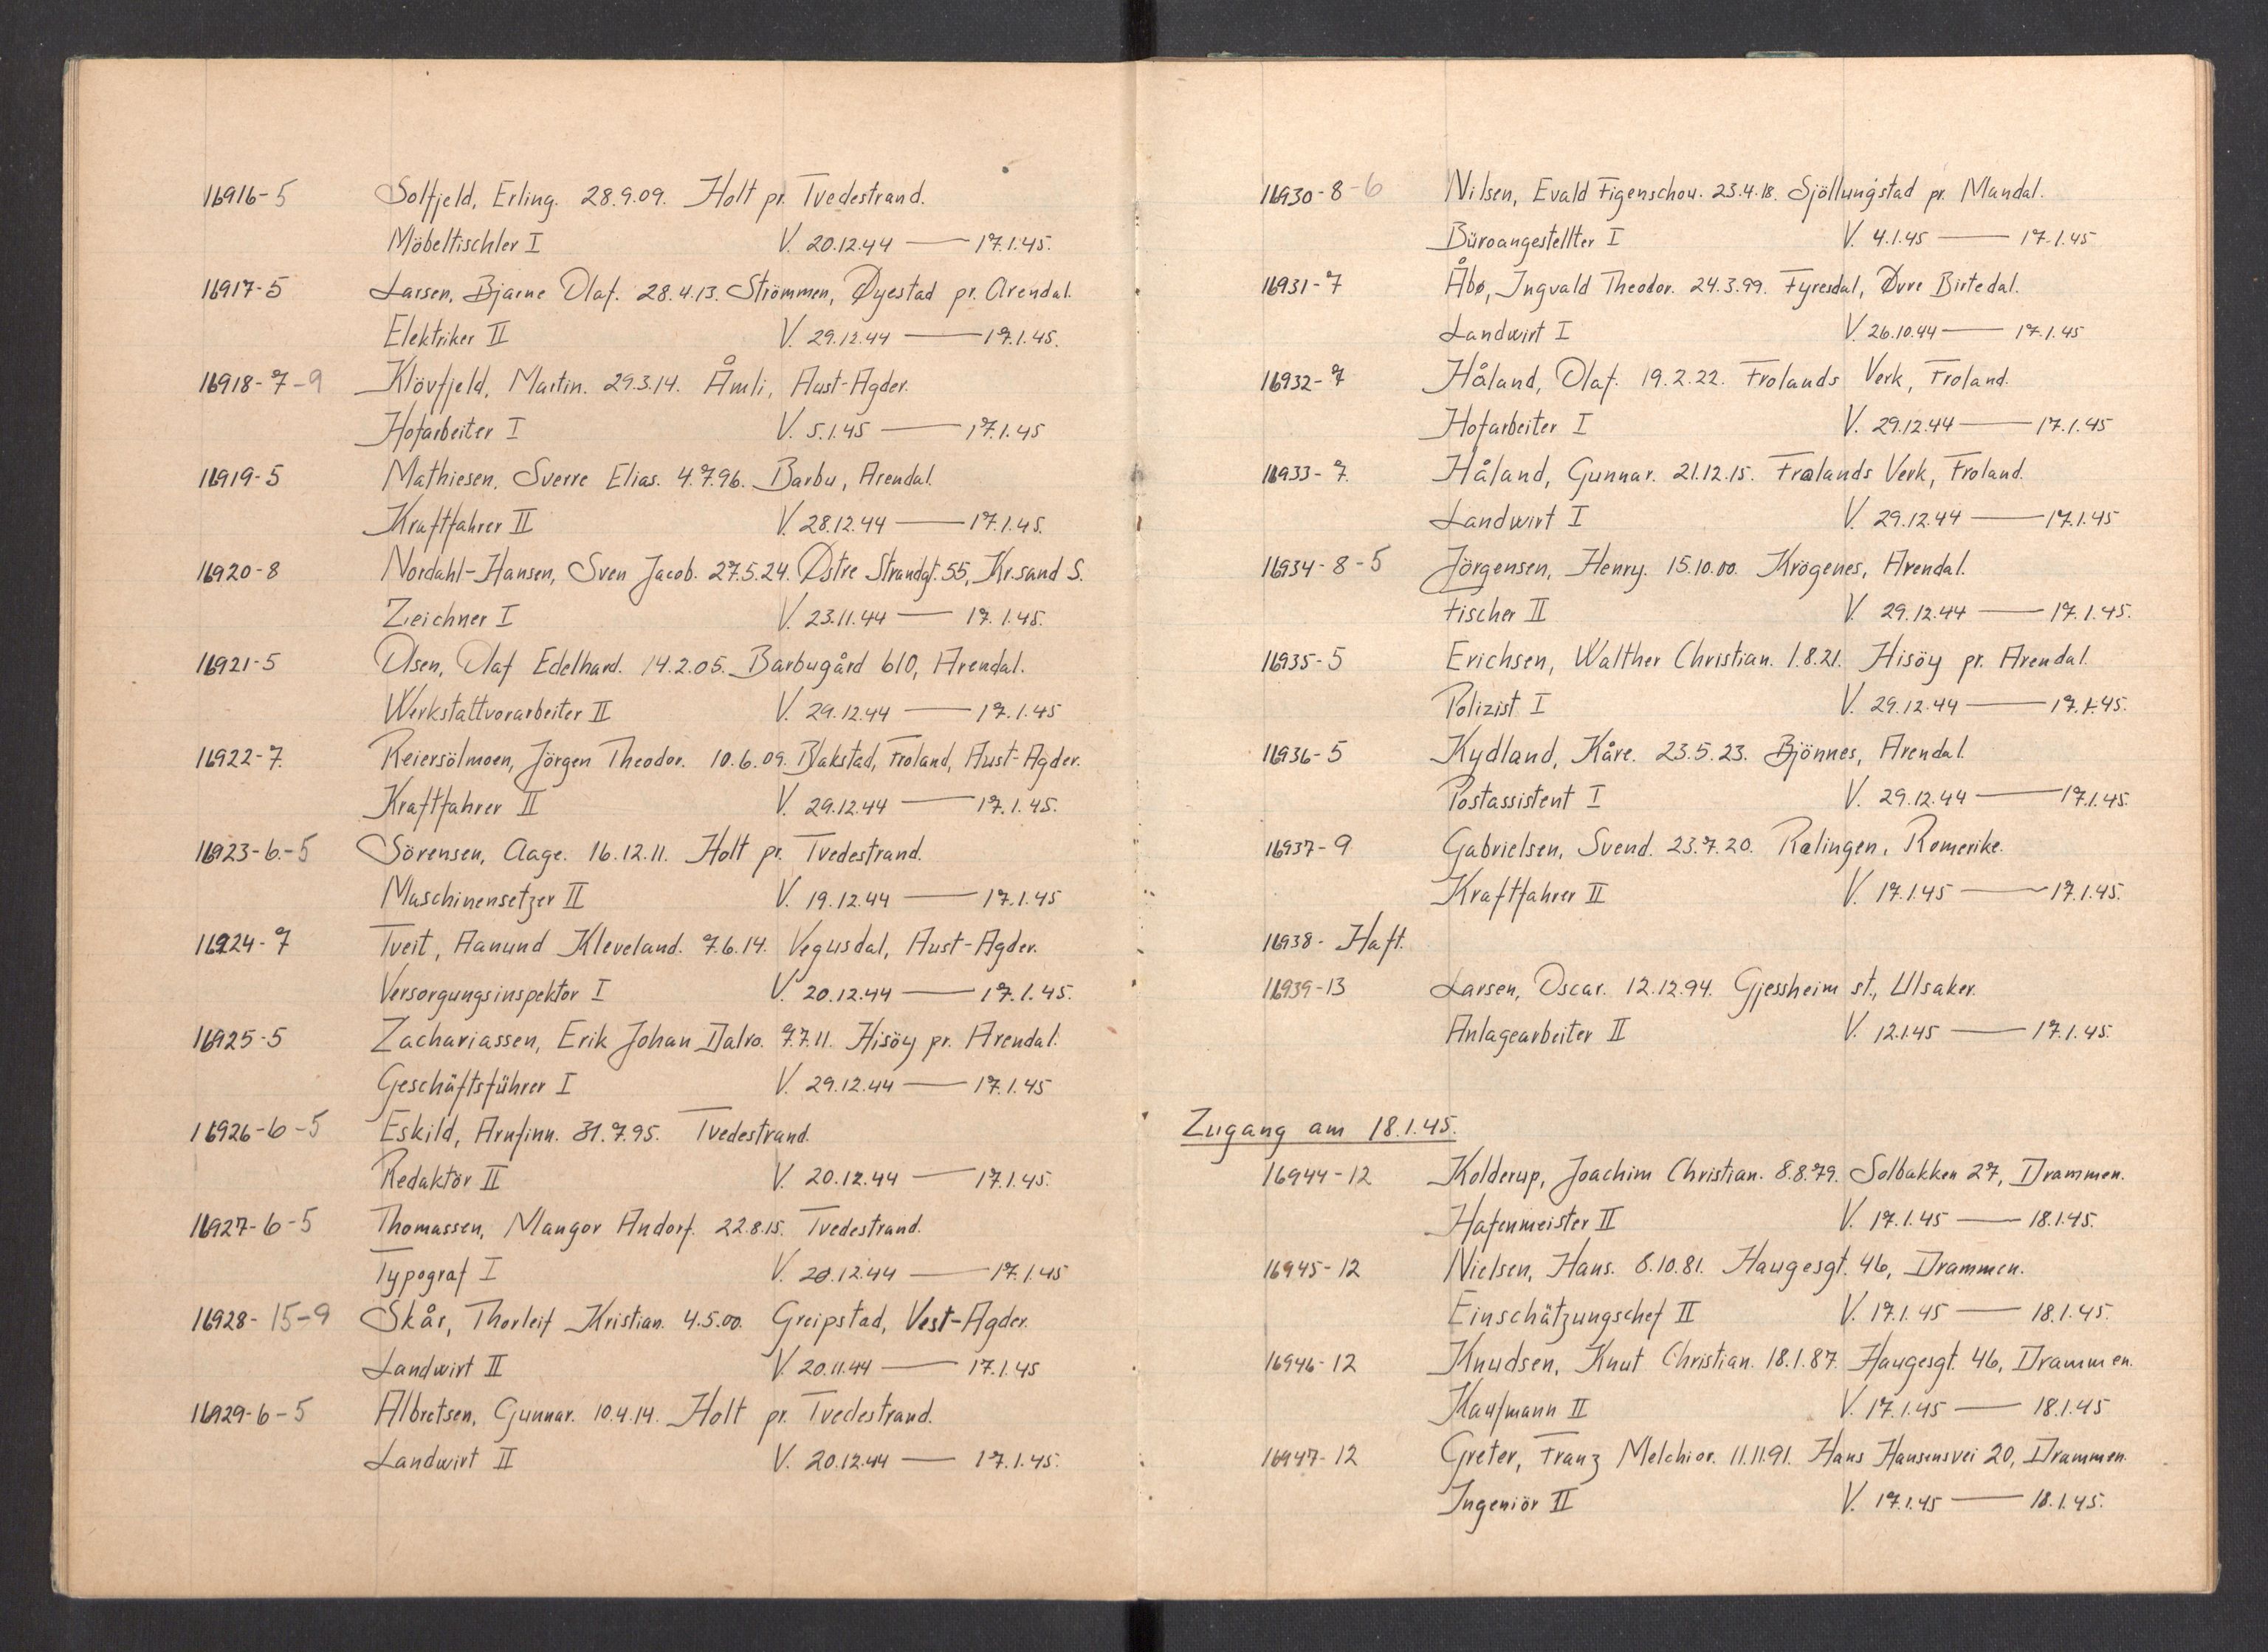 16916-5 Solfjeld, Erling. 28.9.09. Holt pr. Tvedestrand.
Möbeltischler I V. 20.12.44 — 17.1.45.
16917-5 Larsen, Bjarne Olaf. 28.4.13. Strömmen, Øyestad pr. Arendal.
Elektriker II V. 29.12.44 — 17.1.45.
16918-7-9 Klövfjeld, Martin. 29.3.14. Åmli, Aust-Agder.
Hofarbeiter I V. 5.1.45 — 17.1.45
16919-5 Mathiesen, Sverre Elias. 4.7.96. Barbu, Arendal.
Kraftfahrer II V. 28.12.44 — 17.1.45.
16920-8 Nordahl-Hansen, Sven Jacob. 27.5.24. Østre Strandgt. 55, Kr.sand S.
Zeichner I V. 23.11.44 — 17.1.45.
16921-5 Olsen, Olaf Edelhard. 14.2.05. Barbugård 610, Arendal.
Werkstattvorarbeiter II V. 29.12.44 — 17.1.45
16922-7. Reiersölmoen, Jörgen Theodor. 10.6.09. Blakstad, Froland, Aust-Agder.
Kraftfahrer II V. 29.12.44 — 17.1.45.
16923-6.-5 Sörensen, Aage. 16.12.11. Holt pr. Tvedestrand.
Maschinensetzer II V. 19.12.44 — 17.1.45
16924-7 Tveit, Aanund Kleveland. 7.6.14. Vegusdal, Aust-Agder.
Versorgungsinspektor I V. 20.12.44 — 17.1.45.
16925-5 Zachariassen, Erik Johan Dalvo. 7.7.11. Hisöy pr. Arendal.
Geschäftsführer I V. 29.12.44 — 17.1.45
16926-6-5 Eskild, Arnfinn. 31.7.95. Tvedestrand.
Redaktör II V. 20.12.44 — 17.1.45.
16927-6-5 Thomassen, Mangor Andorf. 22.8.15. Tvedestrand.
Typograf I V. 20.12.44 — 17.1.45
16928-15-9 Skår, Thorleif Kristian. 4.5.00. Greipstad, Vest-Agder.
Landwirt II V. 20.11.44 — 17.1.45
16929-6-5 Albretsen, Gunnar. 10.4.14. Holt pr. Tvedestrand.
Landwirt II V. 20.12.44 — 17.1.45.
16930-8-6 Nilsen, Evald Figenschou. 23.4.18. Sjöllungstad pr. Mandal.
Büroangestellter I V. 4.1.45 — 17.1.45
16931-7 Åbø, Ingvald Theodor. 24.3.99. Fyresdal, Øvre Birtedal.
Landwirt I V. 26.10.44 — 17.1.45
16932-7 Håland, Olaf. 19.2.22. Frolands Verk, Froland.
Hofarbeiter I V. 29.12.44 — 17.1.45
16933-7. Håland, Gunnar. 21.12.15. Frolands Verk, Froland.
Landwirt I V. 29.12.44 — 17.1.45
16934-8-5 Jörgensen, Henry. 15.10.00. Krögenes, Arendal.
Fischer II V. 29.12.44 — 17.1.45.
16935-5 Erichsen, Walther Christian. 1.8.21. Hisöy pr. Arendal.
Polizist I V. 29.12.44 — 17.1.45.
16936-5 Kydland, Kåre. 23.5.23. Bjönnes, Arendal.
Postassistent I V. 29.12.44 — 17.1.45.
16937-9 Gabrielsen, Svend. 23.7.20. Rælingen, Romerike.
Kraftfahrer II V. 17.1.45 — 17.1.45.
16938- Haft.
16939-13 Larsen, Oscar. 12.12.94. Gjessheim st., Ulsaker.
Anlagearbeiter II V. 12.1.45 — 17.1.45.
Zugang am 18.1.45.
16944-12 Kolderup, Joachim Christian. 8.8.79. Solbakken 27, Drammen.
Hafenmeister II V. 17.1.45 — 18.1.45.
16945-12 Nielsen, Hans. 8.10.81. Haugesgt. 46, Drammen.
Einschätzungschef II V. 17.1.45 — 18.1.45.
16946-12 Knudsen, Knut Christian. 18.1.87. Haugesgt. 46, Drammen.
Kaufmann II V. 17.1.45 — 18.1.45
16947-12 Greter, Franz Melchior. 11.11.91. Hans Hansensvei 20, Drammen.
Ingeniör II V. 17.1.45 — 18.1.45.